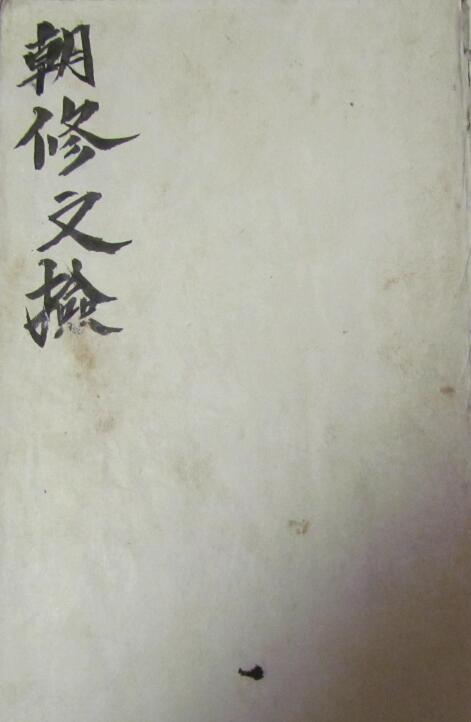 朝修文撿
一